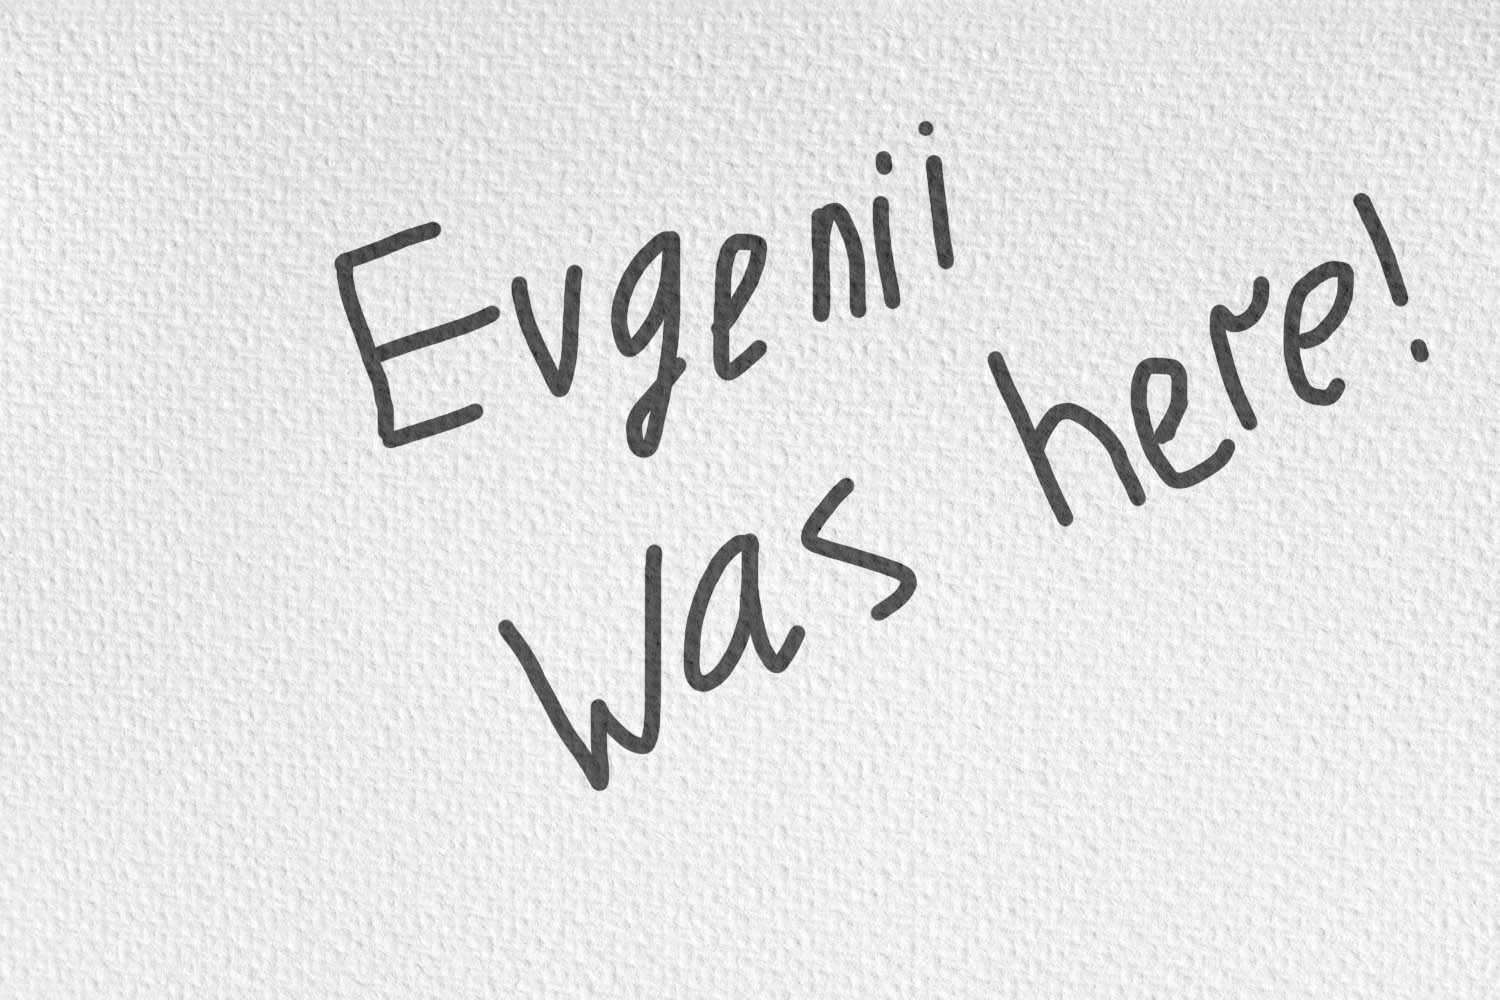 Evgenii
was here!